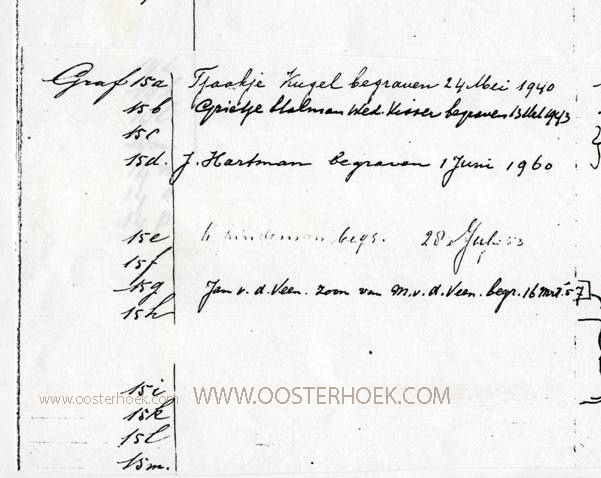 Graf 15a Tjaakje Kugel begraven 24 Mei 1940
15b Grietje Halman Wed. Visser begraven 13 Mrt 1943
15c
15d. J. Hartman begraven 1 Juni 1960
15e begr. 28 July 53
15f
15g Jan v. d. Veen. zoon van M. v. d. Veen. begr. 16 Mrt. 57
15h
15i
www.oosterhoek.com WWW.OOSTERHOEK.COM
15k
15l
15m.